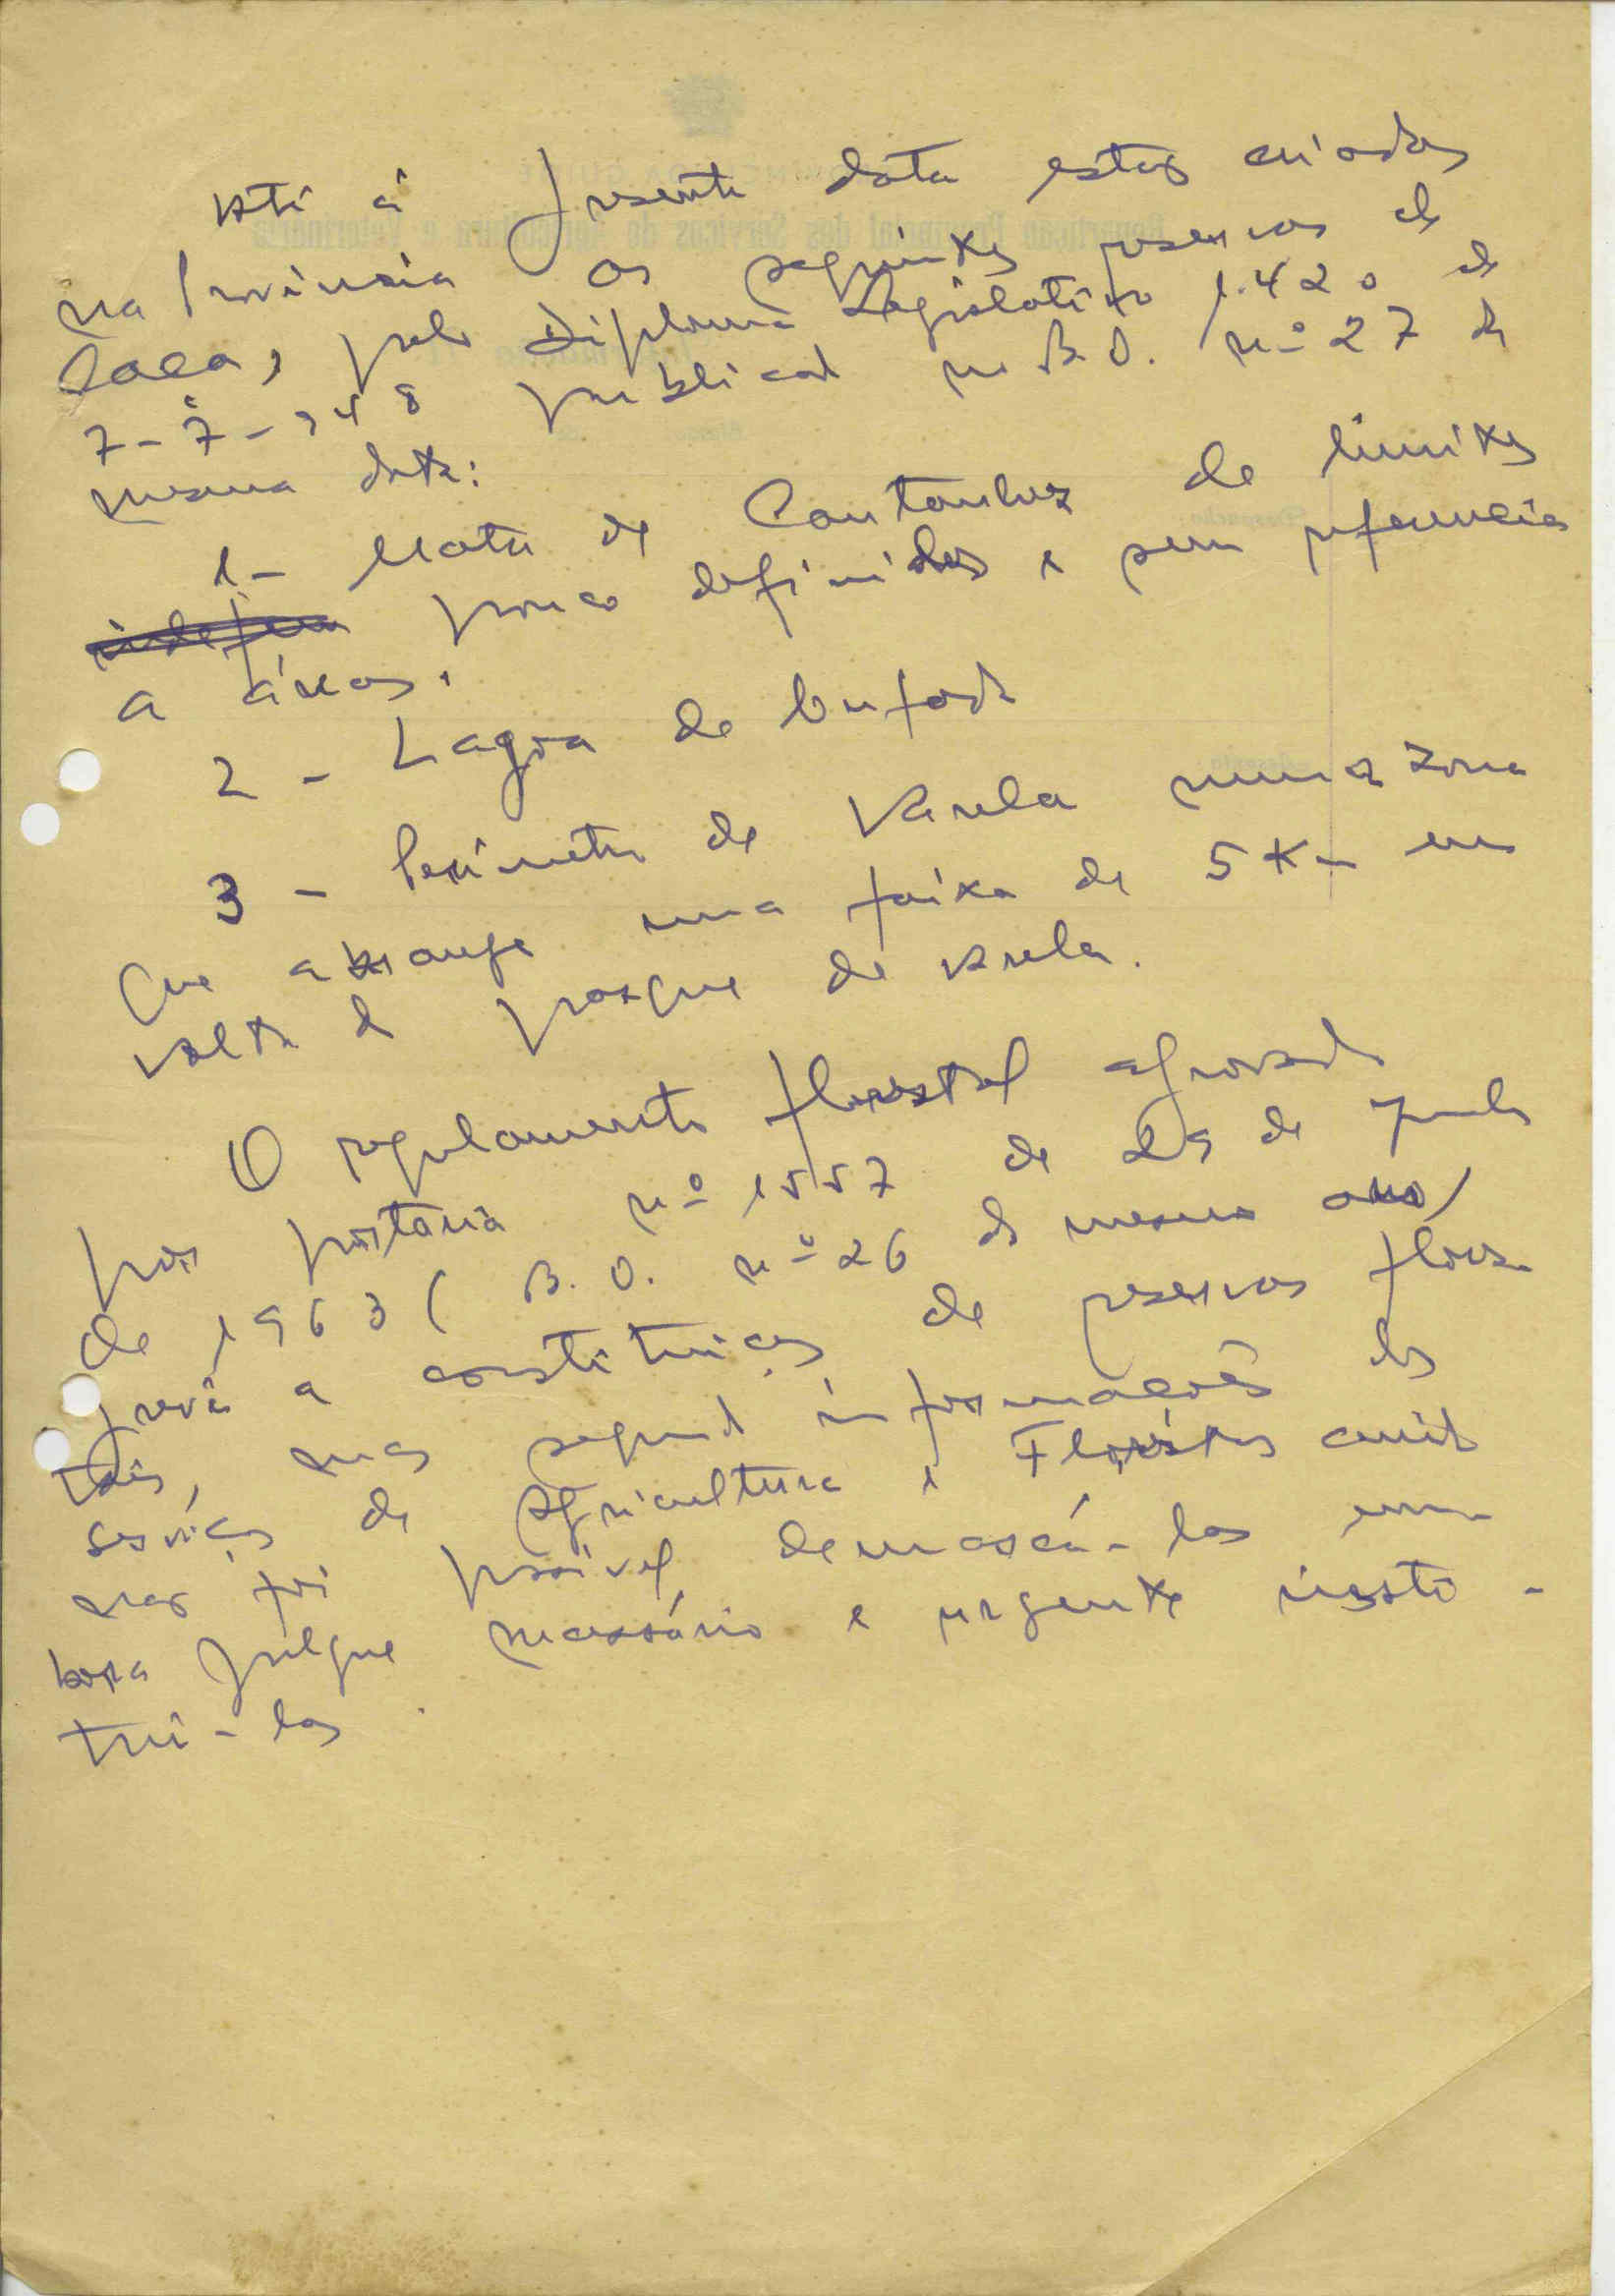 Até à presente data estão criadas
na Província as seguintes reservas de
caça, pelo Diploma Legislativo 1.420 de
7-7-948 publicado no B.O. nº 27 da
mesma data:
1 - Mata de Cantanhez de limites
pouco definidos e sem referencia
a áreas.
2 - Lagoa de Cufada
3 - Perimetro de Varela numa zona
que abrange uma faixa de 5 Km em
volta do parque de Varela.
O regulamento florestal aprovado
por portaria nº 1557 de 29 de Junho
de 1963 ( B.O. nº 26 do mesmo ano)
prevê a constituição de reservas flores-
tais, mas segundo informações dos
serviços de Agricultura e Florestas ainda
não foi possível demarcá-las em-
bora julgue necessário e urgente insti-
tui-las.